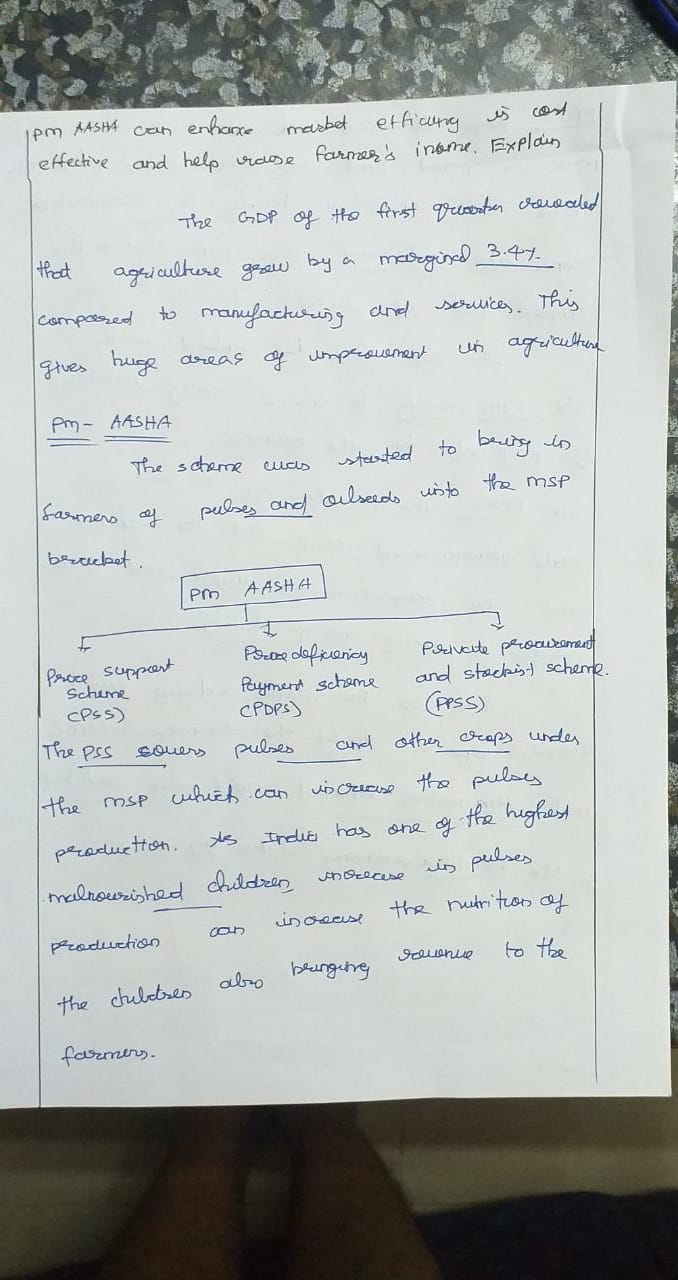 pm AASHA can enhance market efficiency is cost
effective and help raise farmer's income. Explain
The GDP of the first quarter revealed
that agriculture grew by a marginal 3.4%
compared to manufacturing and services. This
gives huge areas of improvement in agriculture
pm- AASHA
The scheme was started to bring in
farmers of pulses and oilseeds into the msp
bracket.
pm AASHA
Price support Scheme (PSS)
Price deficiency Payment scheme (PDPS)
Private procurement and stockist scheme. (PPSS)
The PSS covers pulses and other crops under
the msp which can increase the pulses
production. As India has one of the highest
malnourished children increase in pulses
production can increase the nutrition of
the children also bringing revenue to the
farmers.